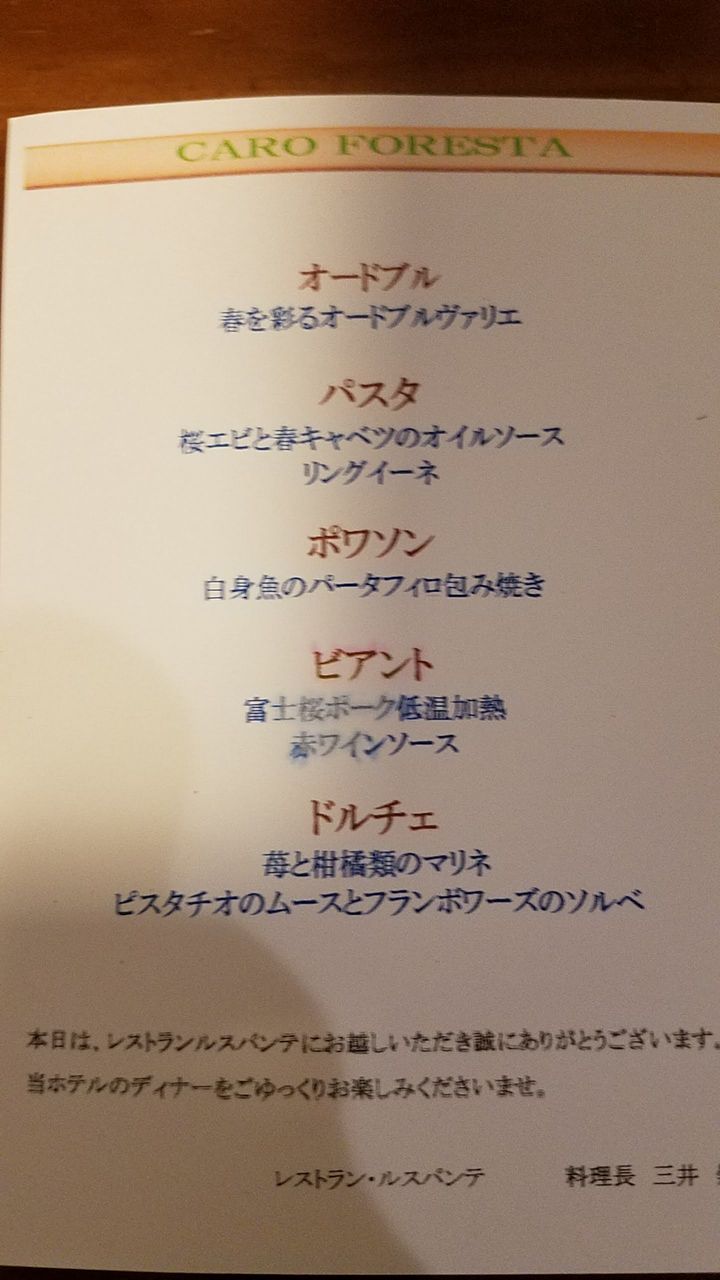 CARO FORESTA
オードブル
春を彩るオードブルヴァリエ
パスタ
桜エビと春キャベツのオイルソース
リングイーネ
ポワソン
白身魚のパータフィロ包み焼き
ビアント
富士桜ポーク低温加熱
赤ワインソース
ドルチェ
苺と柑橘類のマリネ
ピスタチオのムースとフランボワーズのソルベ
本日は、レストランルスパンテにお越しいただき誠にありがとうございます。
当ホテルのディナーをごゆっくりお楽しみくださいませ。
レストラン・ルスパンテ 料理長 三井